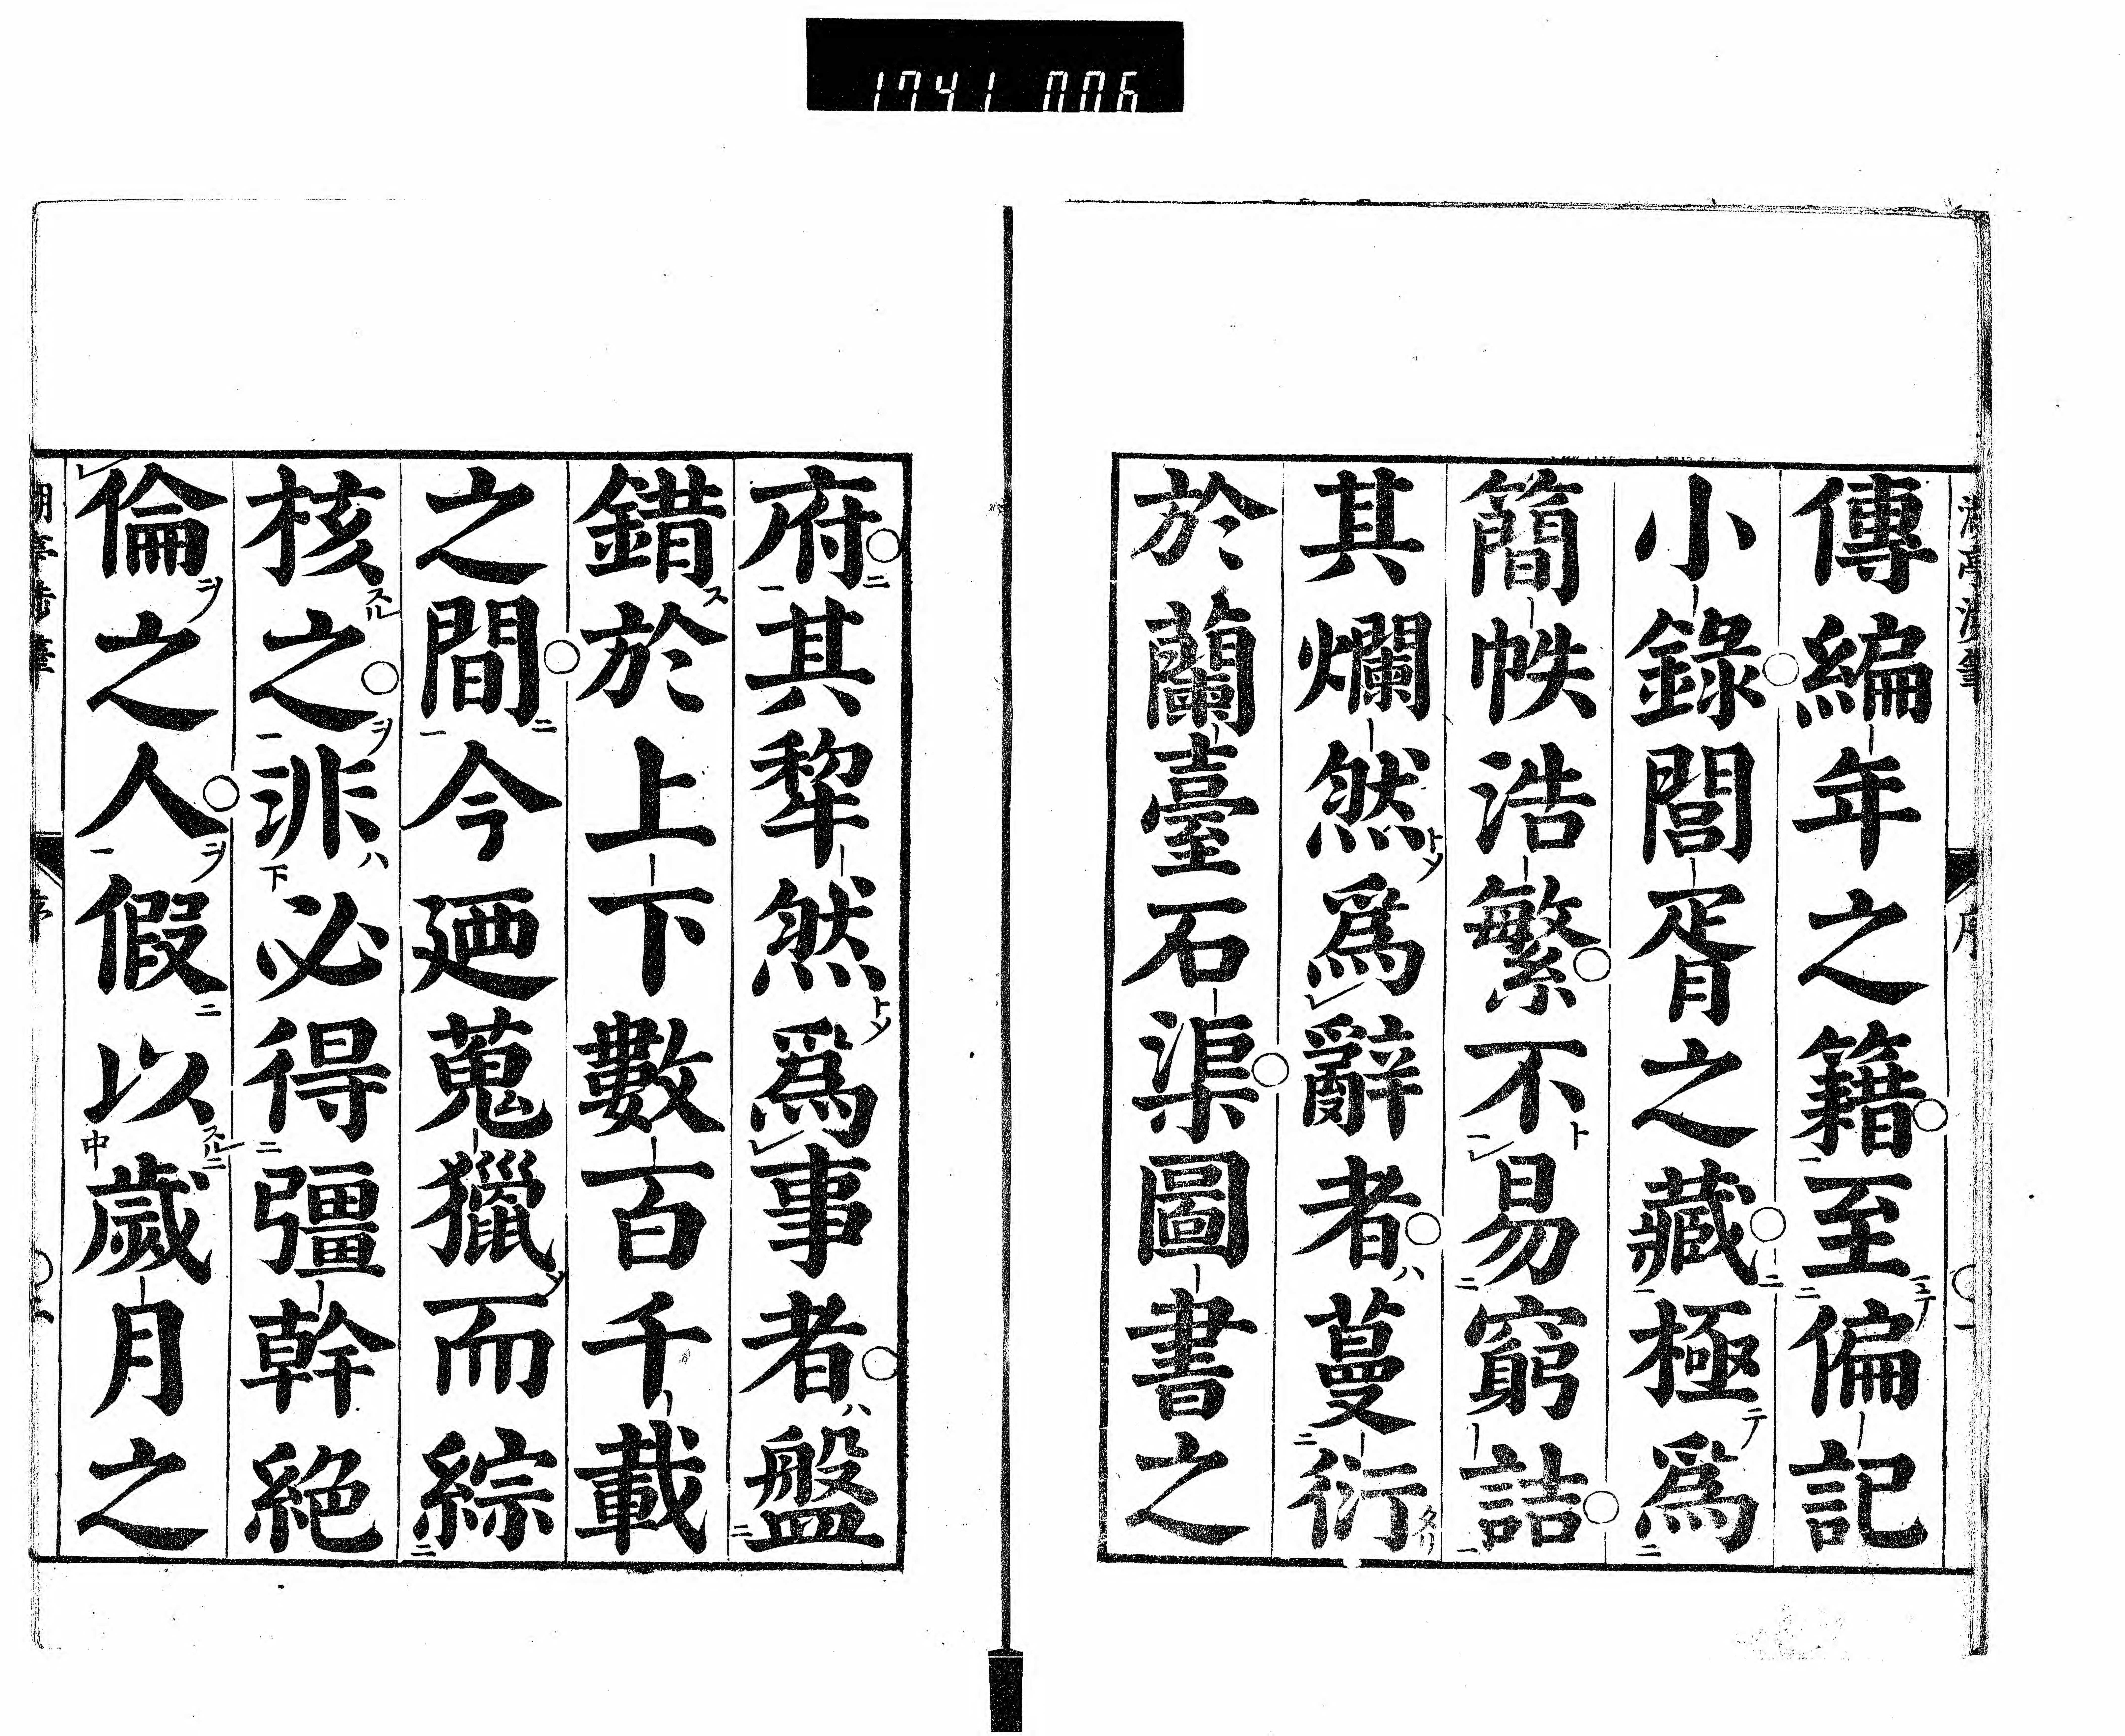 1741 006
傳編年之籍至偏記
小錄閭胥之藏極爲
簡帙浩繁不易窮詰
其爛然爲辭者蔓衍
於蘭臺石渠圖書之
府其犂然爲事者盤
錯於上下數百千載
之間今廼蒐獵而綜
核之非必得彊幹絕
倫之人假以歲月之